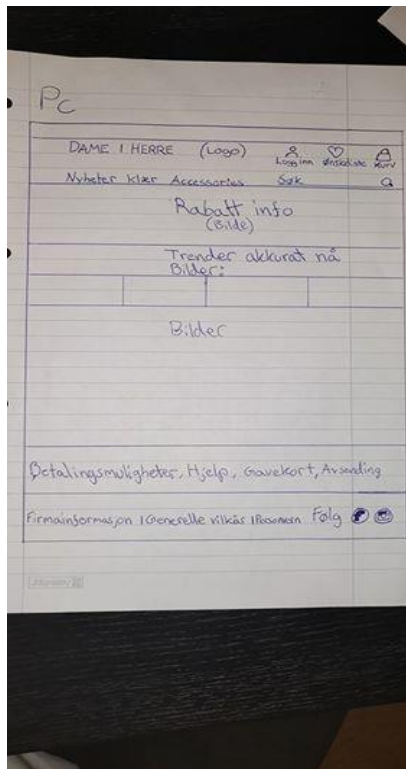 PC
DAME | HERRE (Logo) Logg inn Ønskeliste Kurv
Nyheter Klær Accessories Søk
Rabatt info
(Bilde)
Trender akkurat nå
Bilder:
Bilder
Betalingsmuligheter, Hjelp, Gavekort, Avsending
Firmainformasjon | Generelle vilkår | Følg